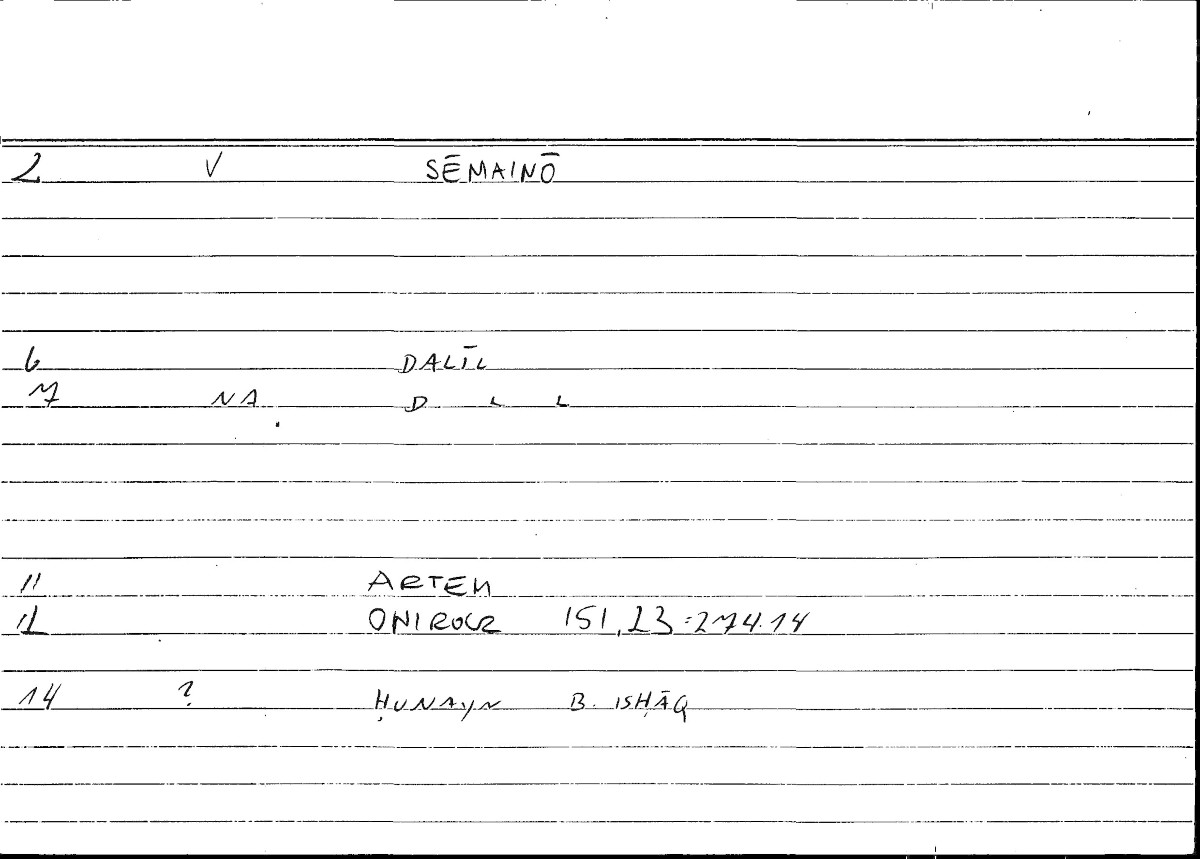 2 V SĒMAINŌ
6 DALĪL
7 NA D L L
11 ARTEM
12 ONIROCR 151,23=274.14
14 ? ḤUNAYN B. ISḤĀQ